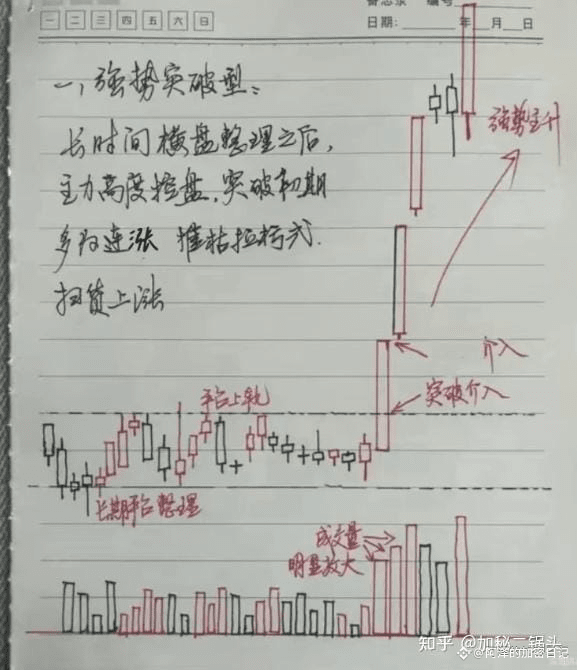 备忘录 编号
一 二 三 四 五 六 日
日期: 年 月 日
一,强势突破型:
长时间横盘整理之后,
主力高度控盘,突破初期
多为连涨 摧枯拉朽式.
扫货上涨
强势主升
介入
突破介入
平台上轨
长期平台整理
成交量
明显放大
知乎 @加秘二锅头
阿泽的加密日记